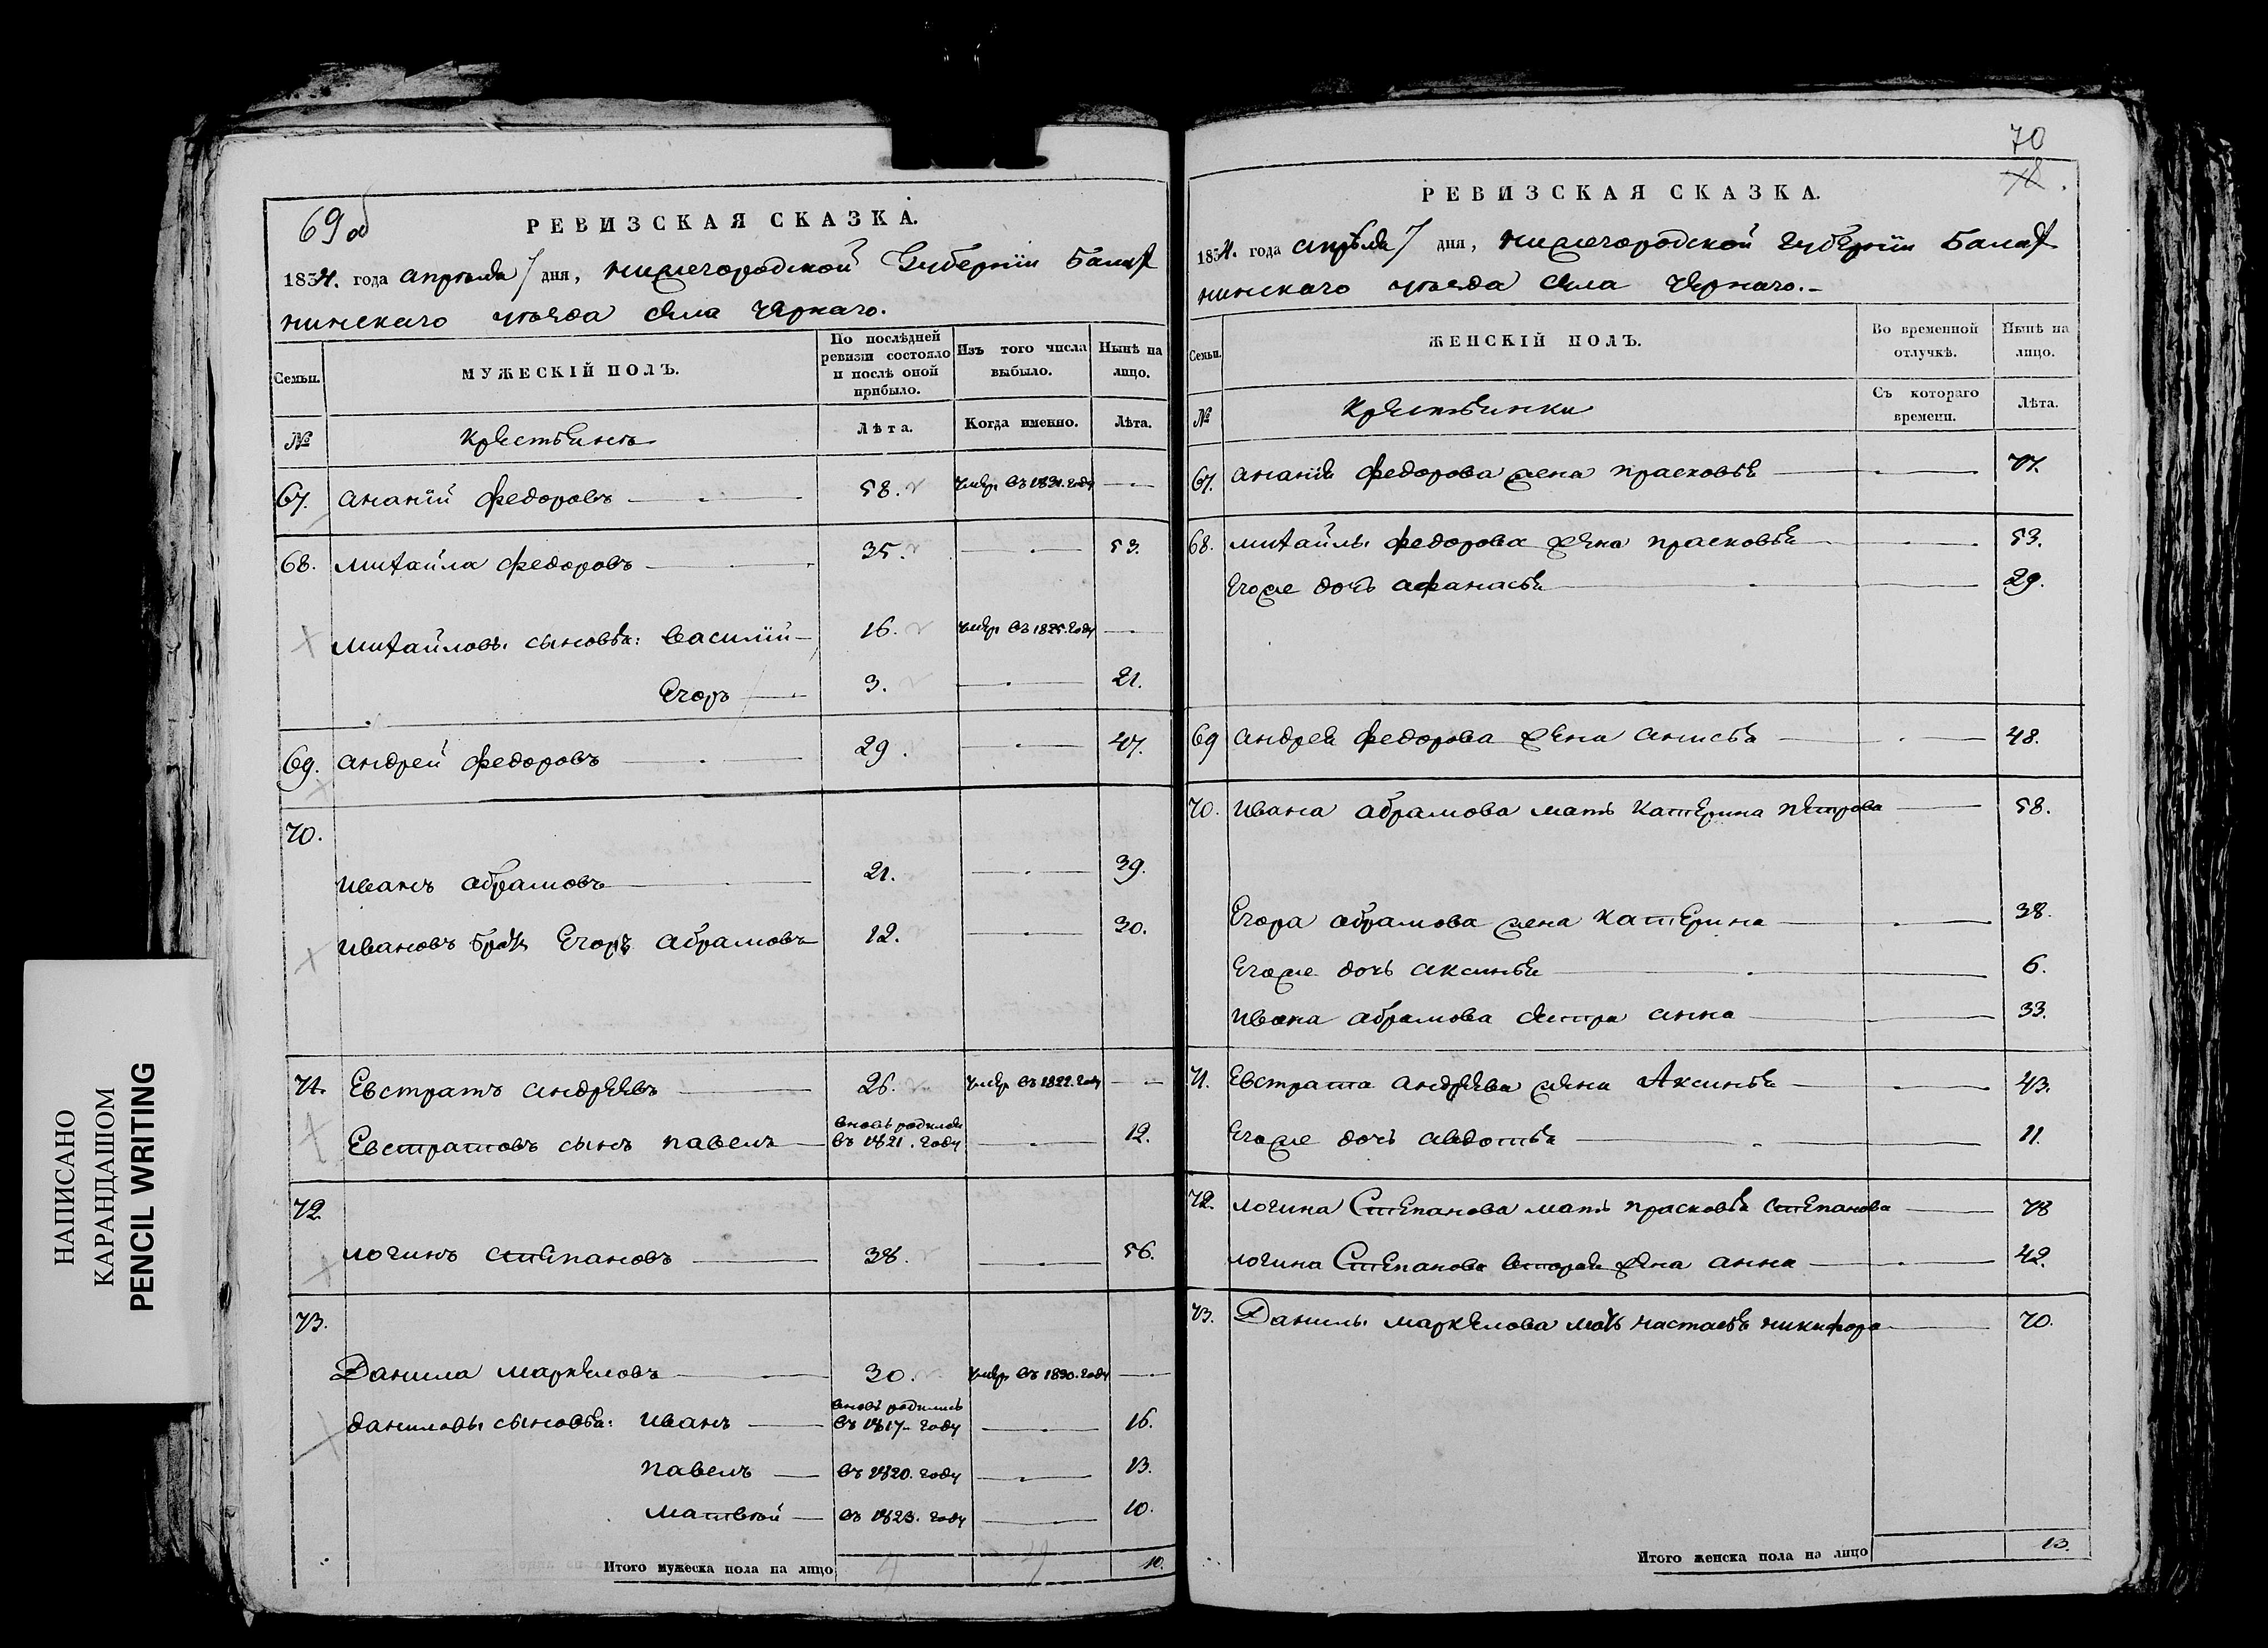 НАПИСАНО
КАРАНДАШОМ
PENCIL WRITING
69об
РЕВИЗСКАЯ СКАЗКА.
1834. года апрѣля 7 дня, нижегородской Губернiи Балах
нинскаго уѣзда села Чернаго.
Семьи.
МУЖЕСКIЙ ПОЛЪ.
По послѣдней ревизiи состояло и послѣ оной прибыло.
Изъ того числа выбыло.
Нынѣ на лицо.
№
Крестьянъ
Лѣта.
Когда именно.
Лѣта.
67. ананiй федоровъ 58. умер. въ 1831. году
68. михайла федоровъ 35. 53.
михайловы сыновья: василiй 16. умер. въ 1825. году
Егоръ 3. 21.
69. андрей федоровъ 29. 47.
70.
иванъ абрамовъ 21. 39.
ивановъ братъ Егоръ абрамовъ 12. 30.
71. Евстратъ андреевъ 26. умер. въ 1822. году
Евстратовъ сынъ павелъ вновь родился въ 1821. году 12.
72.
логинъ степановъ 38. 56.
73.
Данила маркеловъ 30. умер. въ 1830. году
даниловы сыновья: иванъ вновь родились въ 1817. году 16.
павелъ въ 1820. году 13.
матвей въ 1823. году 10.
Итого мужеска пола на лицо 10.
70
РЕВИЗСКАЯ СКАЗКА.
1834. года апрѣля 7 дня, нижегородской губернiи Балах
нинскаго уѣзда села Чернаго.
Семьи.
ЖЕНСКIЙ ПОЛЪ.
Во временной отлучкѣ.
Нынѣ на лицо.
№
Крестьянки
Съ котораго времени.
Лѣта.
67. ананiя федорова жена прасковья 77.
68. михайлы федорова жена прасковья 53.
Егоже дочь афанасья 29.
69 андрея федорова жена анисья 48.
70. ивана абрамова мать катерина петрова 58.
Егора абрамова жена катерина 38.
Егоже дочь аксинья 6.
ивана абрамова сестра анна 33.
71. Евстрата андреева жена Аксинья 43.
Егоже дочь авдотья 11.
72. логина Степанова мать прасковья степанова 78
логина Степанова вторая жена анна 42.
73. Данилы маркелова мать настасья никифоро 70.
Итого женска пола на лицо 13.